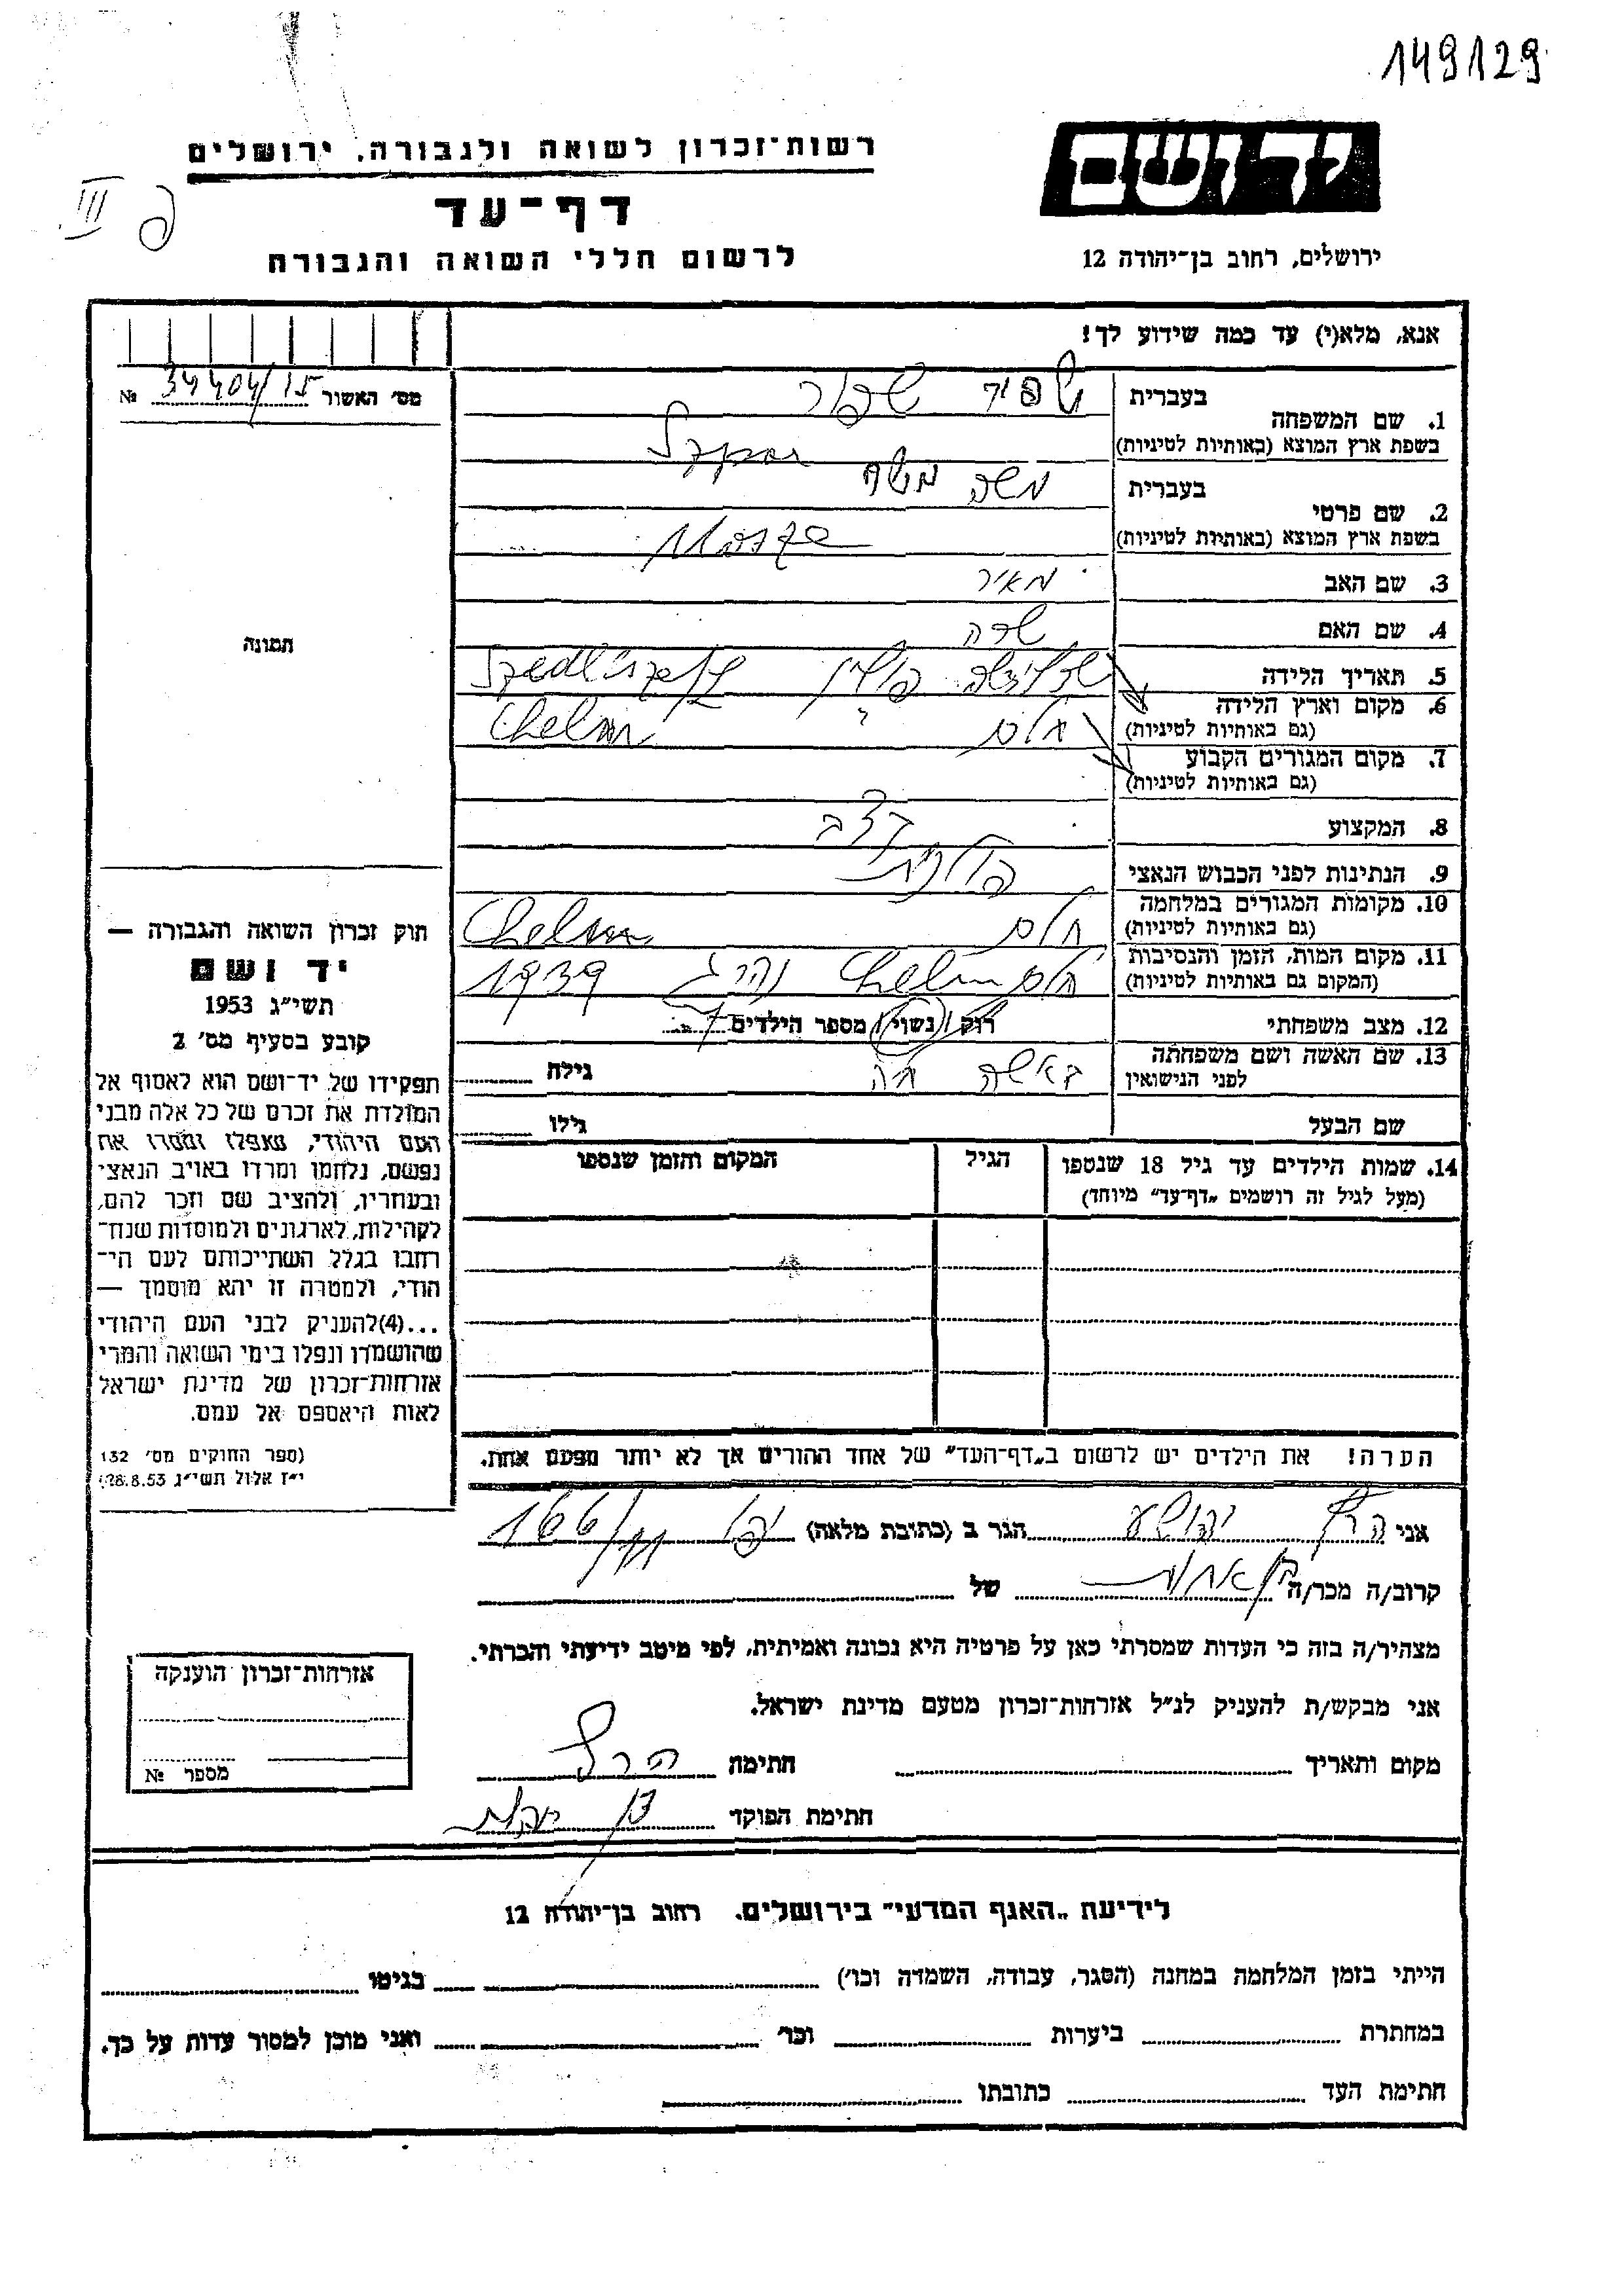 149129
יד ושם
רשות־זכרון לשואה ולגבורה, ירושלים
דף־עד
III
לרשום חללי השואה והגבורה
ירושלים, רחוב בן־יהודה 12
אנא, מלא(י) עד כמה שידוע לך!
מס׳ האשור 34404/15 №
בעברית
1. שם המשפחה
בשפת ארץ המוצא (באותיות לטיניות)
בעברית משה
2. שם פרטי
בשפת ארץ המוצא (באותיות לטיניות) Mosze
3. שם האב מאיר
4. שם האם שרה
5. תאריך הלידה
6. מקום וארץ הלידה
(גם באותיות לטיניות) חלם Chelm
7. מקום המגורים הקבוע
(גם באותיות לטיניות)
8. המקצוע קצב
9. הנתינות לפני הכבוש הנאצי פולנית
10. מקומות המגורים במלחמה
(גם באותיות לטיניות) חלם Chelm
11. מקום המות, הזמן והנסיבות
(המקום גם באותיות לטיניות) חלם Chelm נהרג 1939
12. מצב משפחתי רווק / נשוי / מספר הילדים
13. שם האשה ושם משפחתה
לפני הנישואין באשה חה גילה
שם הבעל גילו
14. שמות הילדים עד גיל 18 שנספו הגיל המקום והזמן שנספו
(מעל לגיל זה רושמים „דף־עד״ מיוחד)
הערה! את הילדים יש לרשום ב„דף־העד״ של אחד ההורים אך לא יותר מפעם אחת.
תמונה
חוק זכרון השואה והגבורה —
יד ושם
תשי״ג 1953
קובע בסעיף מס׳ 2
תפקידו של יד־ושם הוא לאסוף אל
המולדת את זכרם של כל אלה מבני
העם היהודי, שנפלו ומסרו את
נפשם, נלחמו ומרדו באויב הנאצי
ובעוזריו, ולהציב שם וזכר להם,
לקהילות, לארגונים ולמוסדות שנח־
רבו בגלל השתייכותם לעם הי־
הודי, ולמטרה זו יהא מוסמך —
...(4) להעניק לבני העם היהודי
שהושמדו ונפלו בימי השואה והמרי
אזרחות־זכרון של מדינת ישראל
לאות היאספם אל עמם.
(ספר החוקים מס׳ 132
י״ז אלול תשי״ג 28.8.53)
אני יהושע הגר ב (כתובת מלאה) יפו 166
קרוב/ה מכר/ה בן אחות של
מצהיר/ה בזה כי העדות שמסרתי כאן על פרטיה היא נכונה ואמיתית, לפי מיטב ידיעתי והכרתי.
אני מבקש/ת להעניק לנ״ל אזרחות־זכרון מטעם מדינת ישראל.
מקום ותאריך חתימה
חתימת הפוקד
אזרחות־זכרון הוענקה
מספר №
לידיעת „האגף המדעי״ בירושלים. רחוב בן־יהודה 12
הייתי בזמן המלחמה במחנה (הסגר, עבודה, השמדה וכו׳) בגיטו
במחתרת ביערות וכו׳ ואני מוכן למסור עדות על כך.
חתימת העד כתובתו